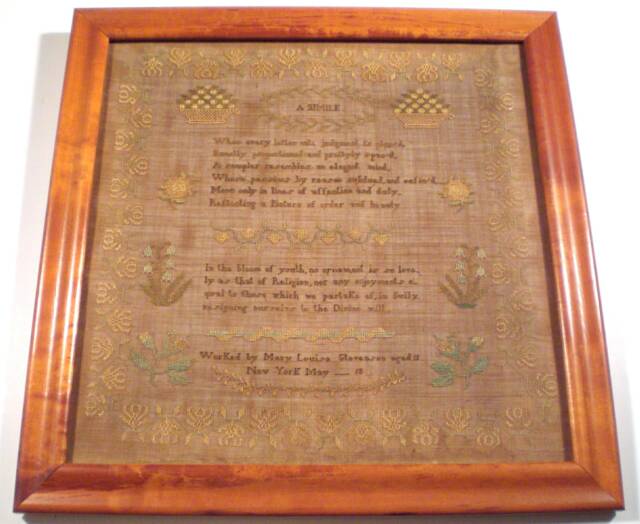 A SIMILE
When every letter with judgment is placed,
Equally proportioned and prettily spaced,
A sampler resembles an elegant mind,
Where passions by reason subdued, and refin'd,
Move only in lines of affection and duty,
Reflecting a Picture of order and beauty
In the bloom of youth, no ornament is so love,
ly as that of Religion, nor any enjoyments e,
qual to those which we partake of, in fully
resigning ourselves to the Divine will
Worked by Mary Louisa aged
New York May 18